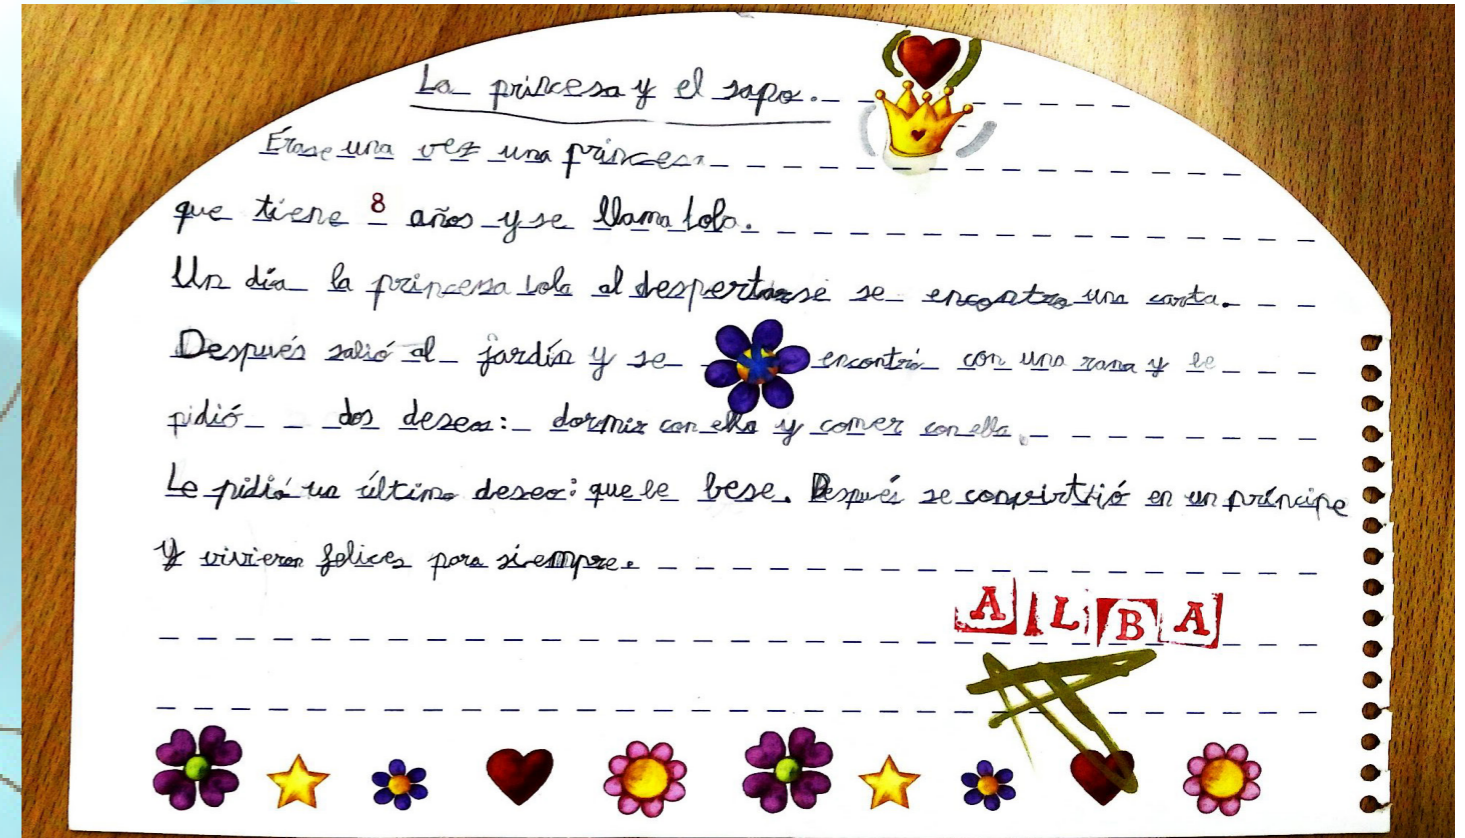 La princesa y el sapo.
Érase una vez una princesa
que tiene 8 años y se llama Lola.
Un día la princesa Lola al despertarse se encontro una carta.
Después salió al jardín y se encontró con una rana y le
pidió dos deseos: dormir con ella y comer con ella.
Le pidió un último deseo: que le bese. Después se convirttió en un príncipe
y vivieron felices para siempre.
ALBA